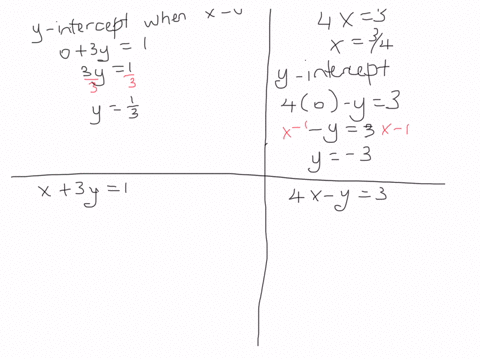 y-intercept when x=0
0+3y = 1
3y/3 = 1/3
y = 1/3
4x = 3
x = 3/4
y-intercept
4(0)-y=3
x-1 -y = 3 x-1
y = -3
x+3y=1
4x-y=3